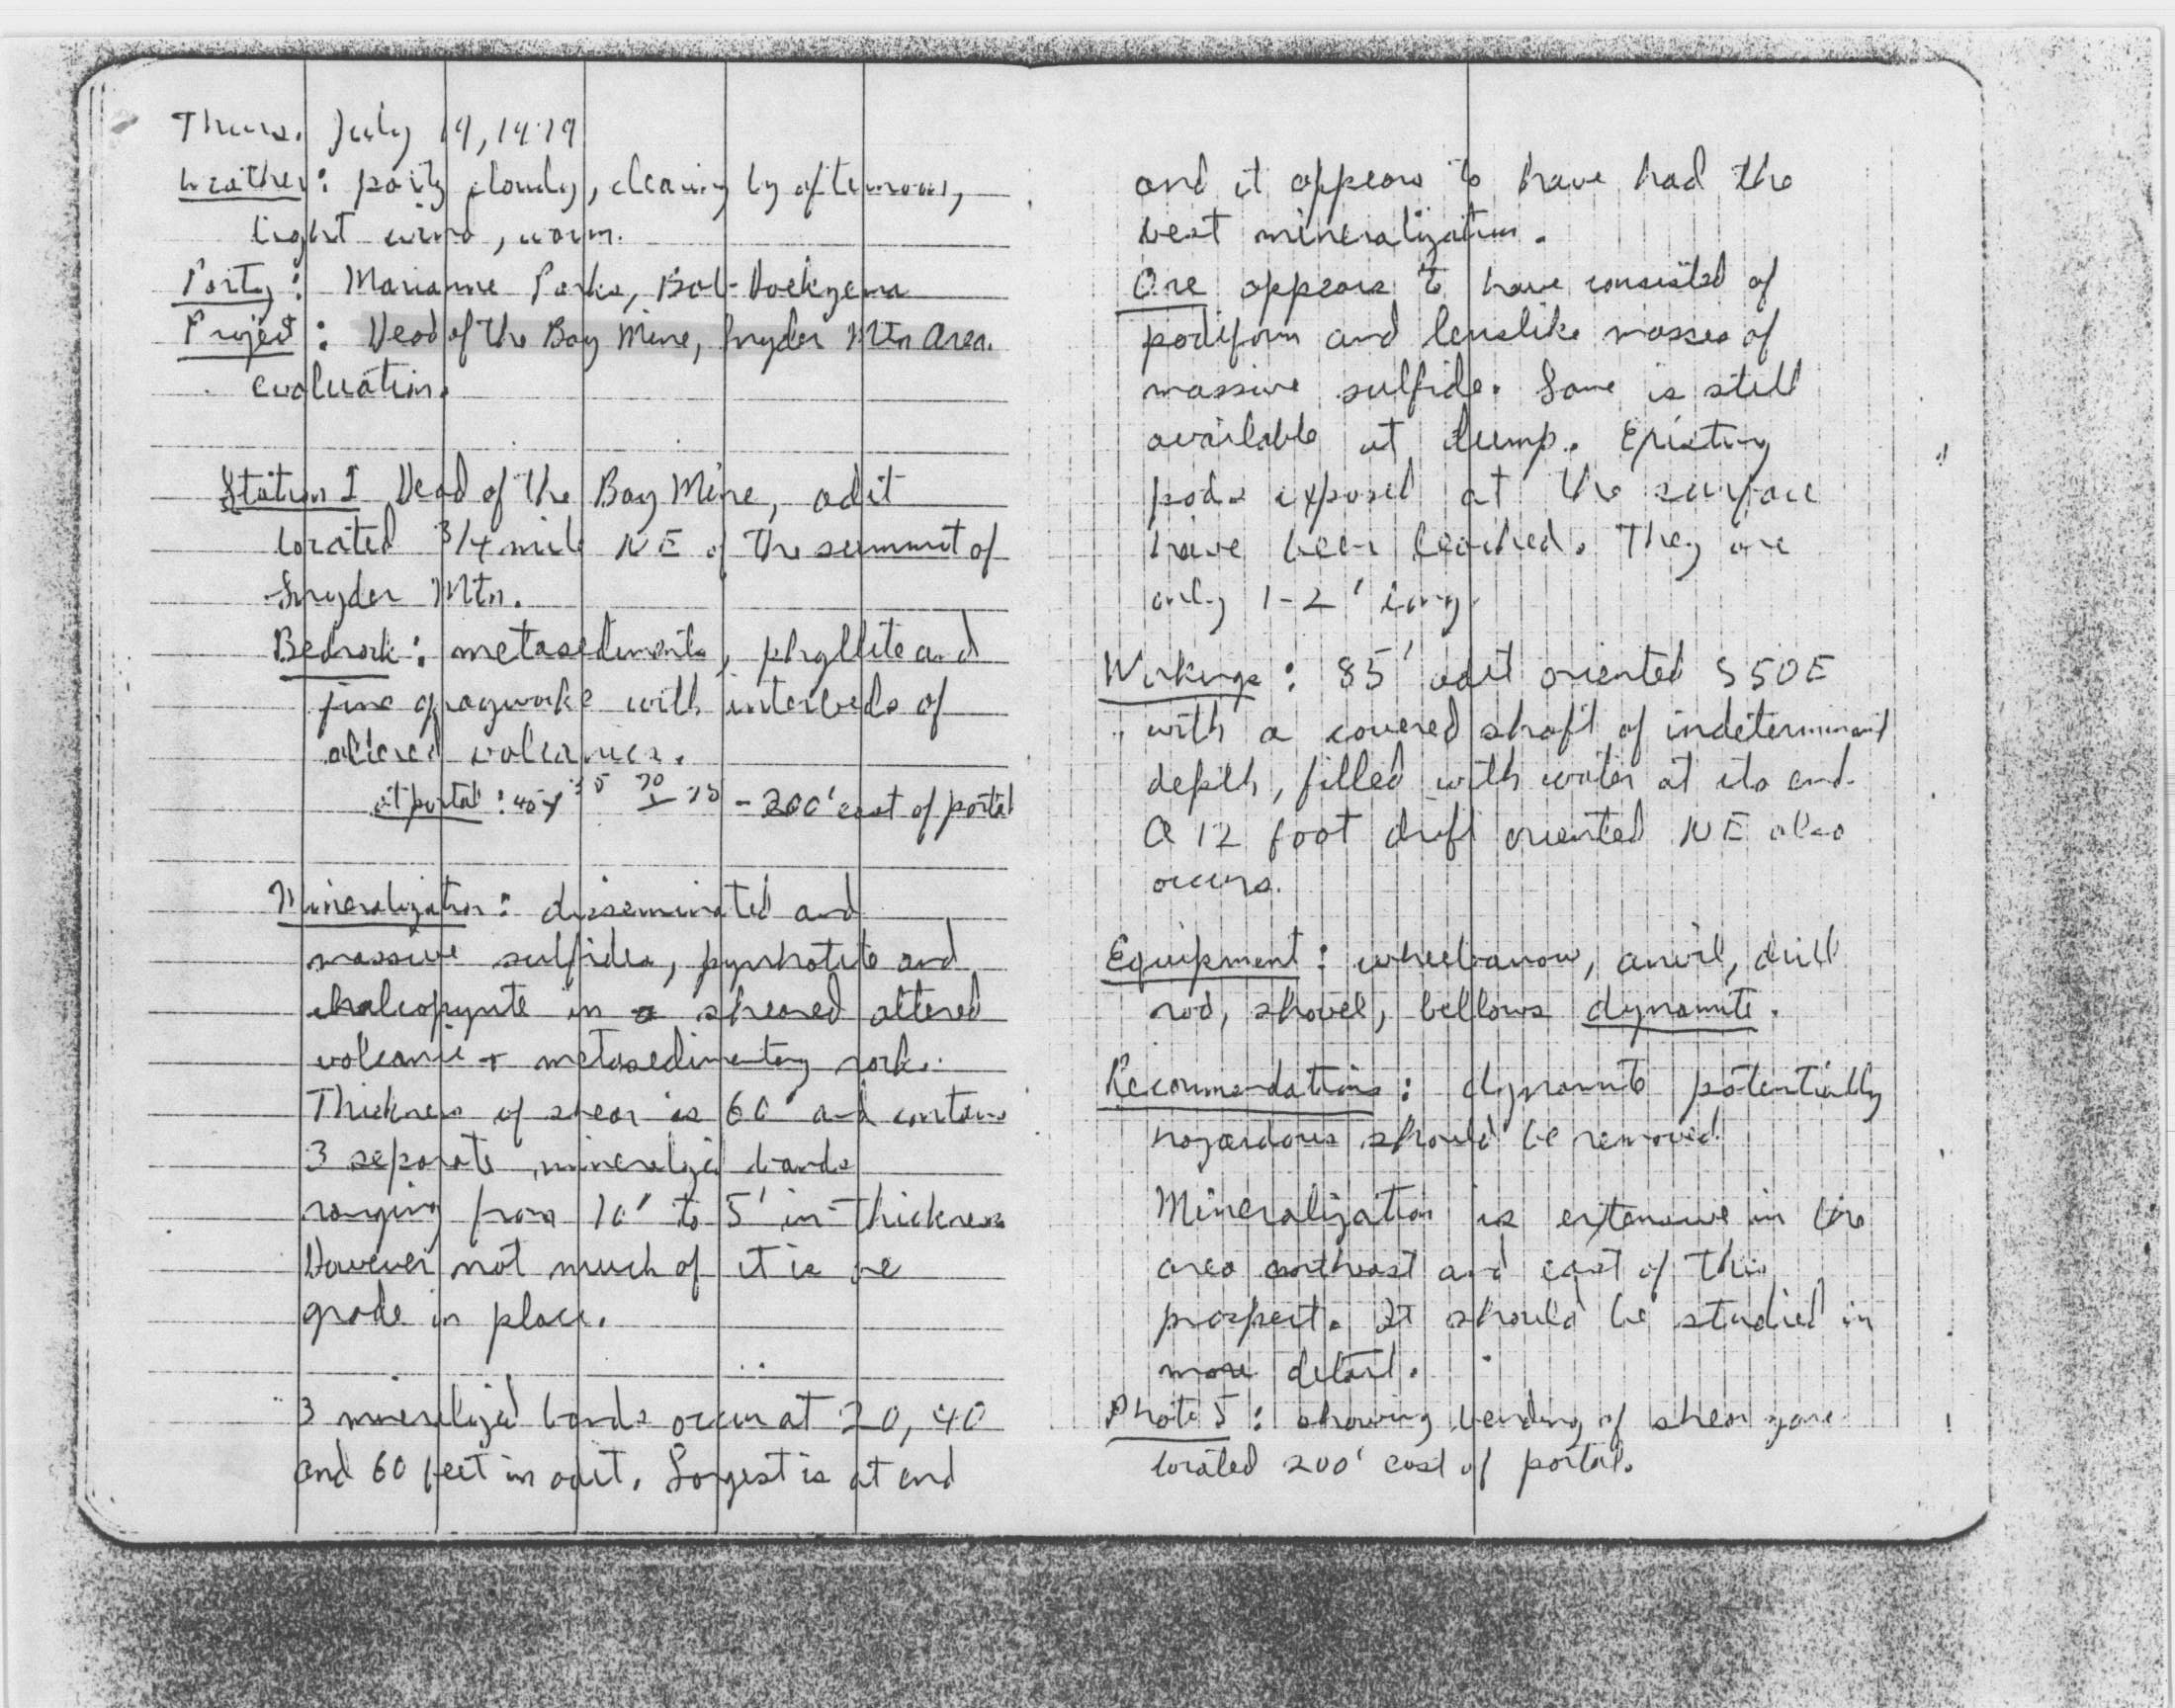 Thurs. July 19, 1979
Weather: partly cloudy, clearing by afternoon,
light wind, warm.
Party: Marianne Parks, Bob
Project: Head of the Bay Mine, Snyder Mtn Area.
evaluation.
Station 1 Head of the Bay Mine, adit
located 3/4 mile NE of the summit of
Snyder Mtn.
Bedrock: metasediments, phyllite and
fine graywacke with interbeds of
altered volcanics.
at portal: - 200' east of portal
Mineralization: disseminated and
massive sulfides, pyrrhotite and
chalcopyrite in a sheared altered
volcanic + metasedimentary rock.
Thickness of shear is 60' and contains
3 separate mineralized bands
ranging from 10' to 5' in thickness
However not much of it is ore
grade in place.
3 mineralized bands occur at 20, 40
and 60 feet in adit. Largest is at end
and it appears to have had the
best mineralization.
Ore appears to have consisted of
podiform and lenslike masses of
massive sulfide. Some is still
available at dump. Existing
pods exposed at the surface
have been leached. They are
only 1-2' long.
Workings: 85' adit oriented S50E
with a covered shaft of indeterminant
depth, filled with water at its end.
A 12 foot drift oriented NE also
occurs.
Equipment: wheelbarrow, anvil, drill
rod, shovel, bellows dynamite.
Recommendations: dynamite potentially
hazardous should be removed.
Mineralization is extensive in the
area and east of this
prospect. It should be studied in
more detail.
Photo 5: showing bending of shear zone
located 200' east of portal.